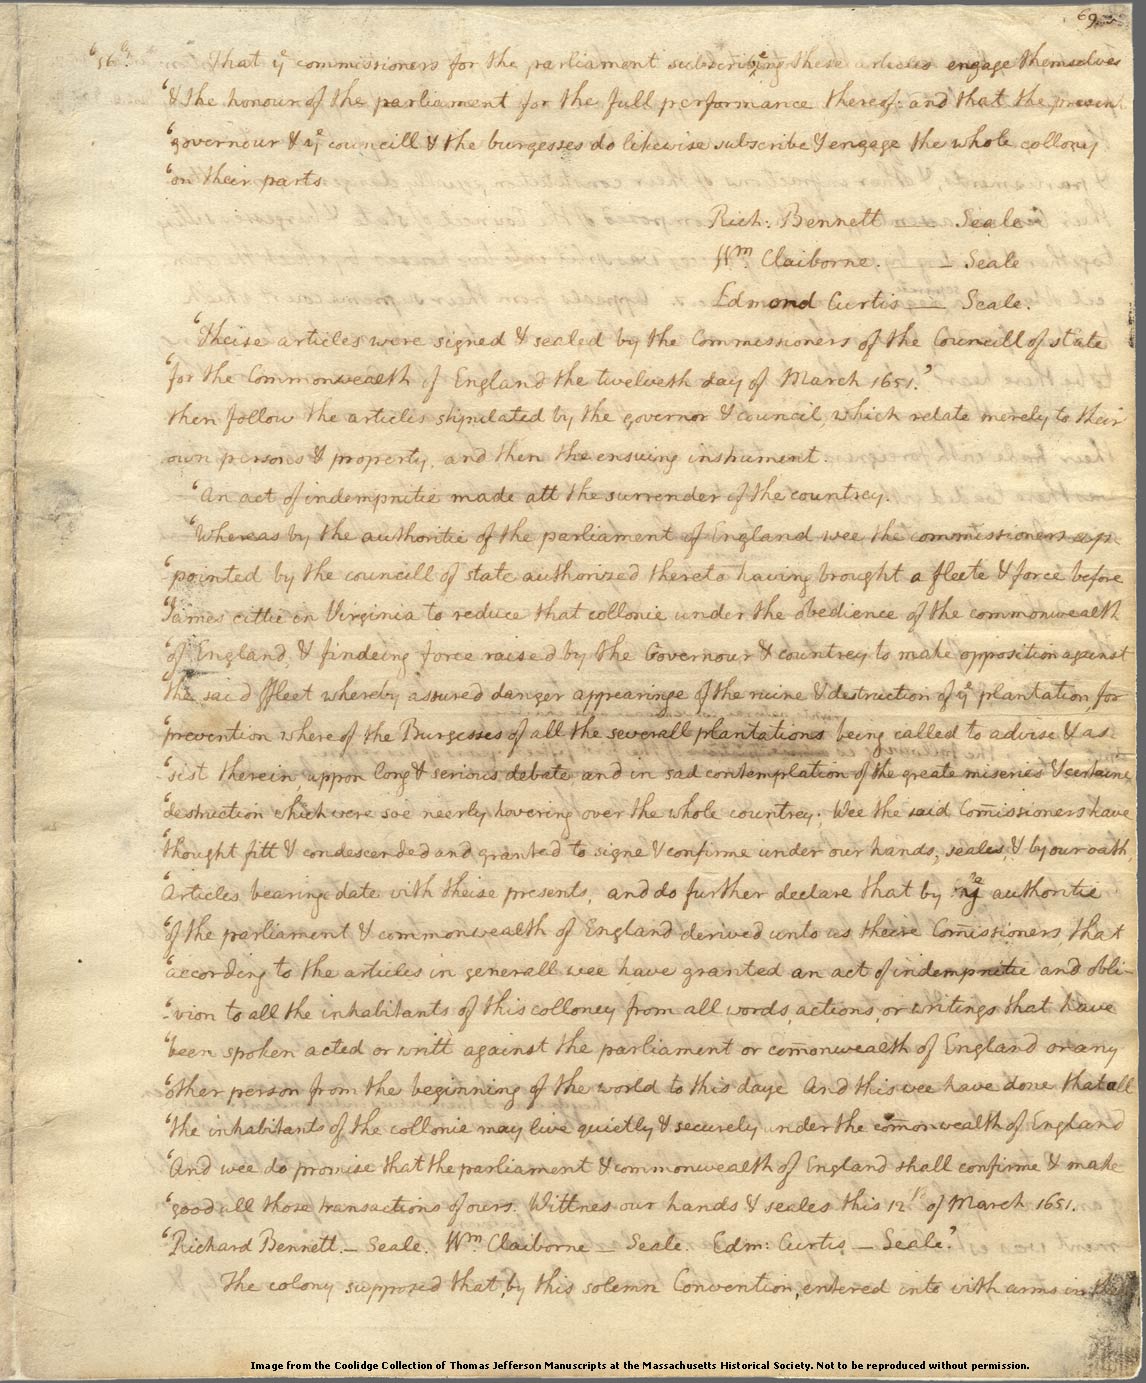 69.
'16ly. That ye commissioners for the parliament subscribeing these articles engage themselves
'& the honour of the parliament for the full performance thereof: and that the present
'governour & ye councill & the burgesses do likewise subscribe & engage the whole collony
'on their parts
Rich: Bennett —— Seale
Wm. Claiborne. —— Seale
Edmond Curtis —— Seale.
'Theise articles were signed & sealed by the Commissioners of the Councill of state
'for the Commonwealth of England the twelveth day of March 1651.'
then follow the articles stipulated by the governor & council, which relate merely to their
own persons & property, and then the ensuing instrument.
'An act of indempnitie made att the surrender of the countrey.
'Whereas by the authoritie of the parliament of England wee the commissioners ap-
'pointed by the councill of state authorized thereto having brought a fleete & force before
'James cittie in Virginia to reduce that collonie under the obedience of the commonwealth
'of England, & findeing force raised by the Governour & countrey to make opposition against
'the said ffleet whereby assured danger appearinge of the ruine & destruction of ye plantation, for
'prevention whereof the Burgesses of all the severall plantations being called to advise & as-
'sist therein, uppon long & serious debate, and in sad contemplation of the greate miseries & certaine
'destruction which were soe neerly hovering over the whole countrey; Wee the said Com̄issioners have
'thought fitt & condescended and granted to signe & confirme under our hands, seales, & by our oath,
'Articles bearing date with theise presents, and do further declare that by ye authoritie
'of the parliament & commonwealth of England derived unto us theire Com̄issioners, that
'according to the articles in generall wee have granted an act of indempnitie and obli-
'-vion to all the inhabitants of this colloney from all words, actions, or writings that have
'been spoken acted or writt against the parliament or com̄onwealth of England or any
'other person from the beginning of the world to this daye And this wee have done that all
'the inhabitants of the collonie may live quietly & securely under the com̄onwealth of England
'And wee do promise that the parliament & commonwealth of England shall confirme & make
'good all those transactions of ours. Wittnes our hands & seales this 12th of March 1651.
'Richard Bennett — Seale. Wm. Claiborne — Seale. Edm: Curtis — Seale.'
The colony supposed that, by this solemn Convention, entered into with arms in their
Image from the Coolidge Collection of Thomas Jefferson Manuscripts at the Massachusetts Historical Society. Not to be reproduced without permission.